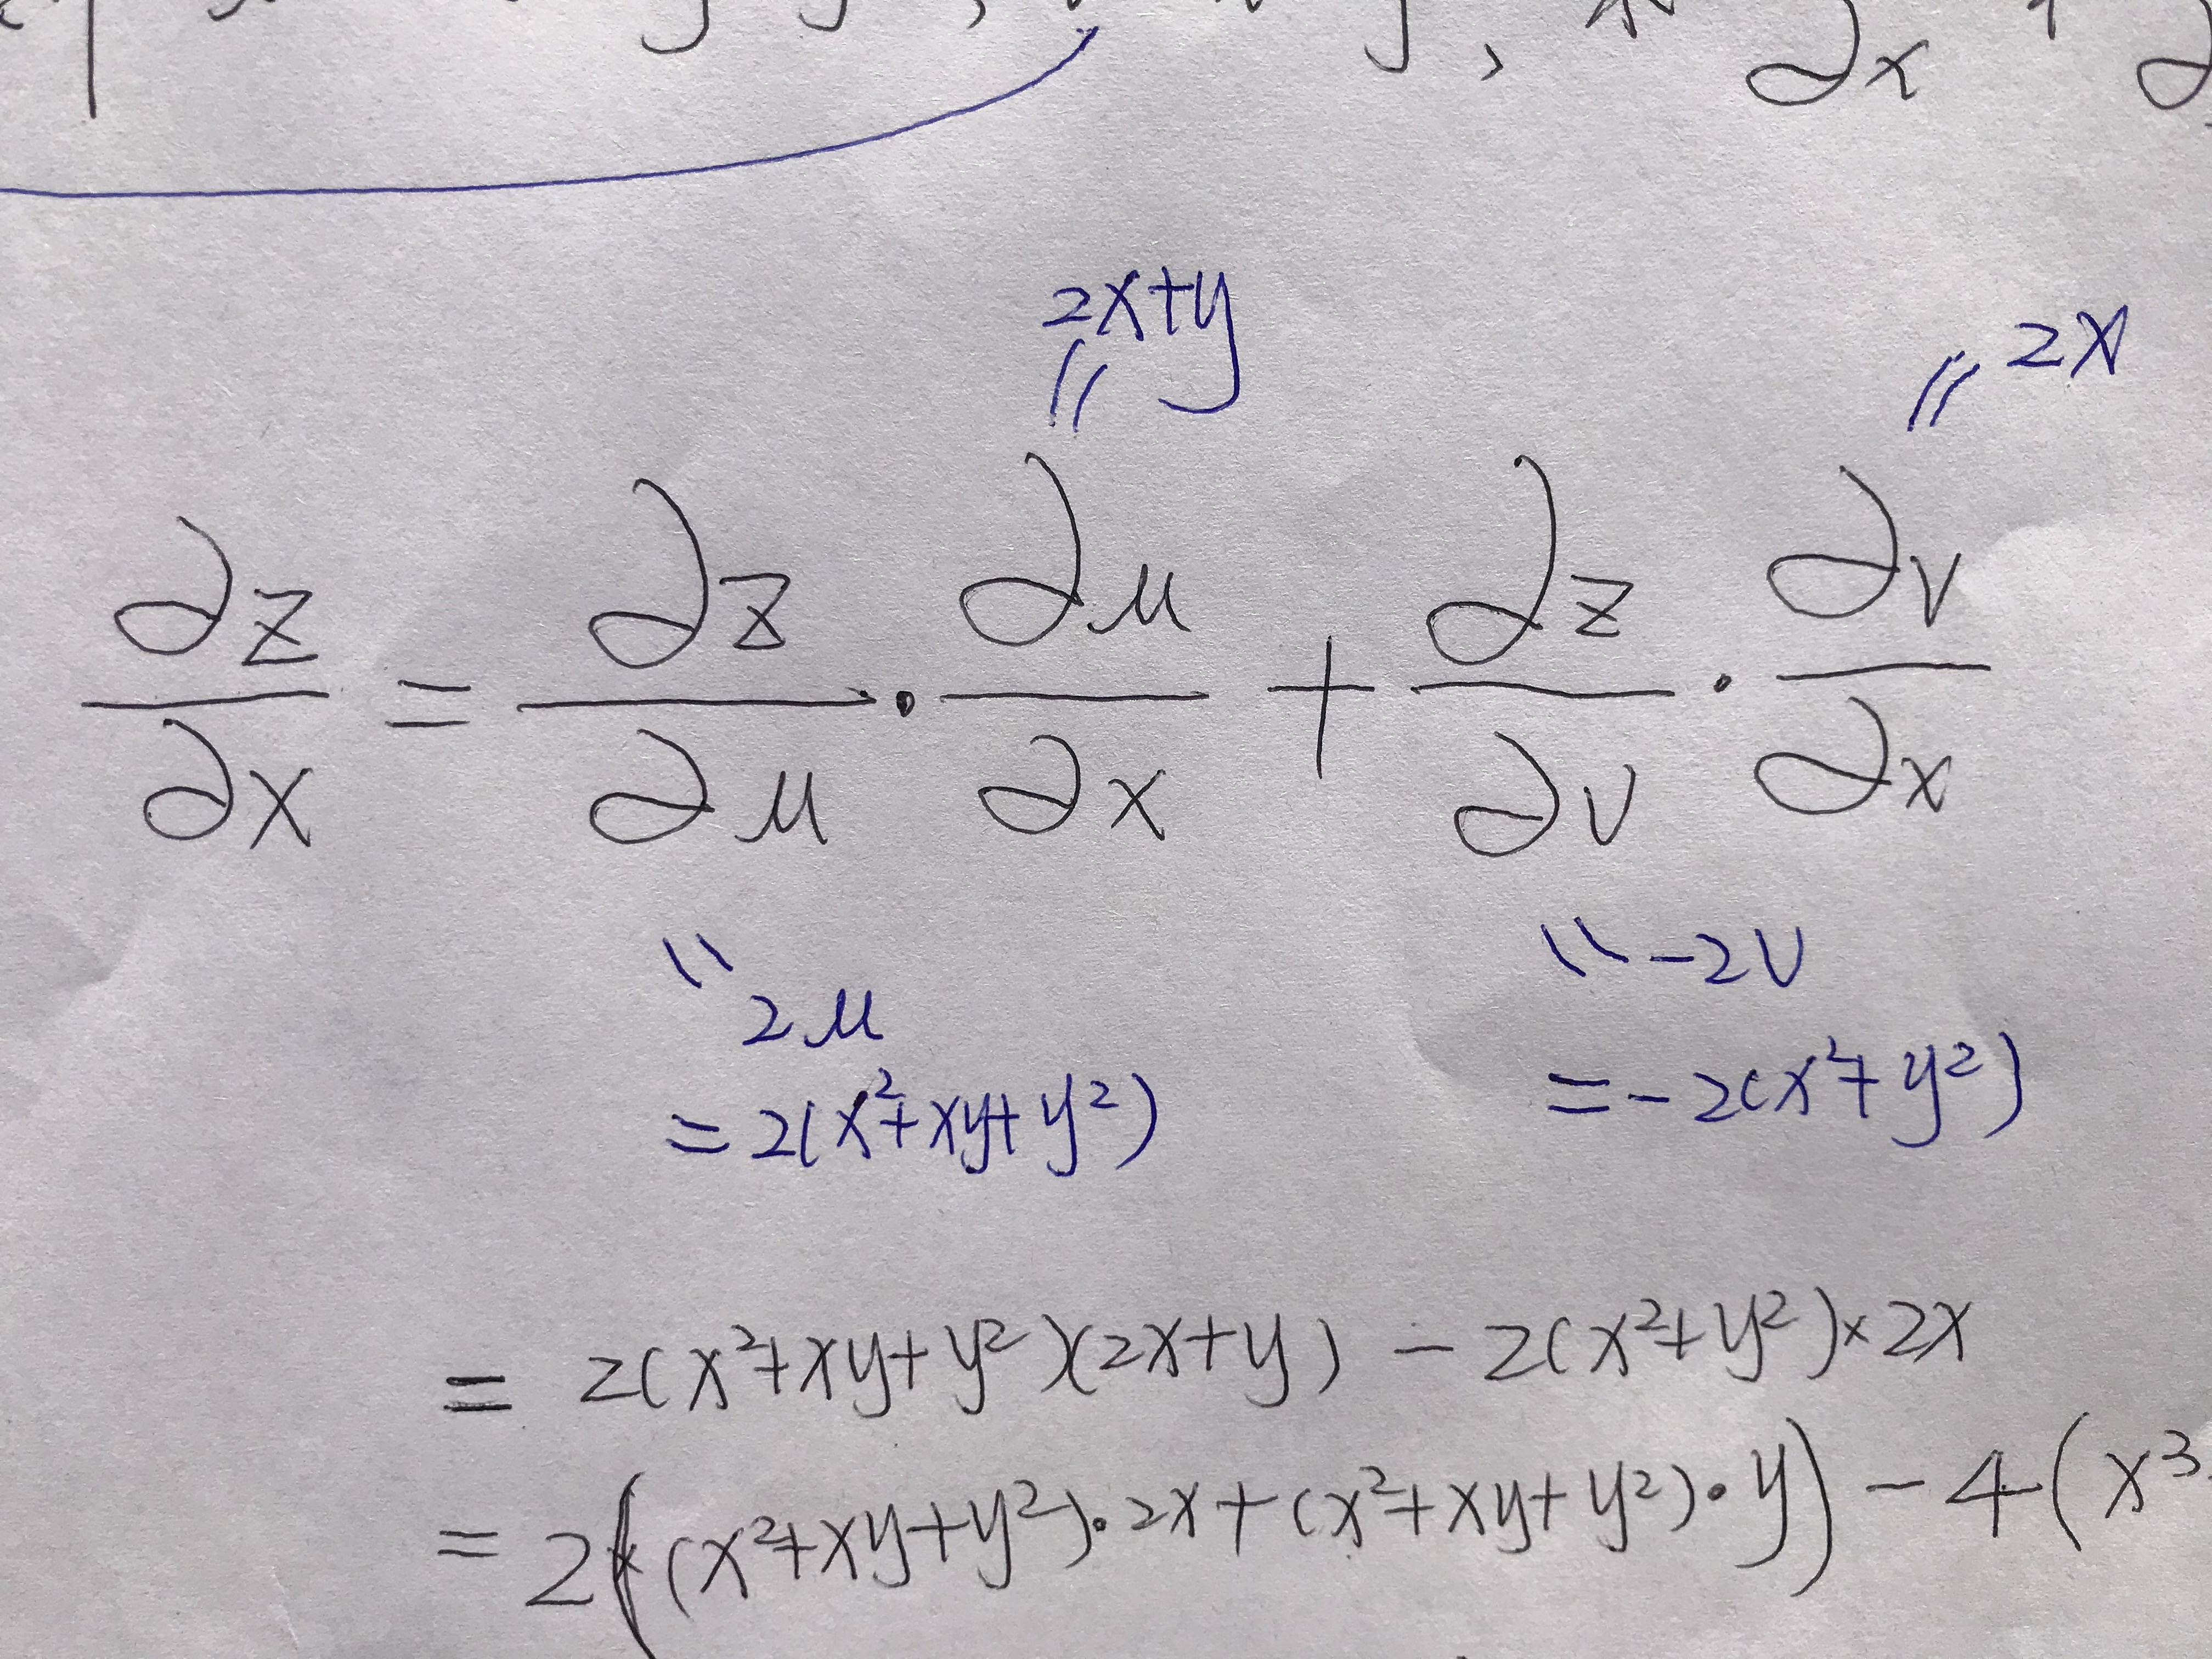 2x+y
= 2x
∂z/∂x = ∂z/∂u · ∂u/∂x + ∂z/∂v · ∂v/∂x
= 2u = -2v
= 2(x²+xy+y²) = -2(x²+y²)
= 2(x²+xy+y²)(2x+y) - 2(x²+y²)×2x
= 2((x²+xy+y²)·2x+(x²+xy+y²)·y) - 4(x³